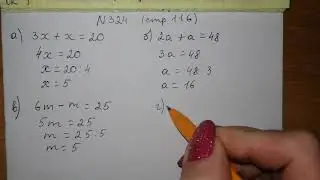 N324 (стр 116)
а) 3x + x = 20
4x = 20
x = 20 : 4
x = 5
б) 2a + a = 48
3a = 48
a = 48 : 3
a = 16
в) 6m - m = 25
5m = 25
m = 25 : 5
m = 5
г)